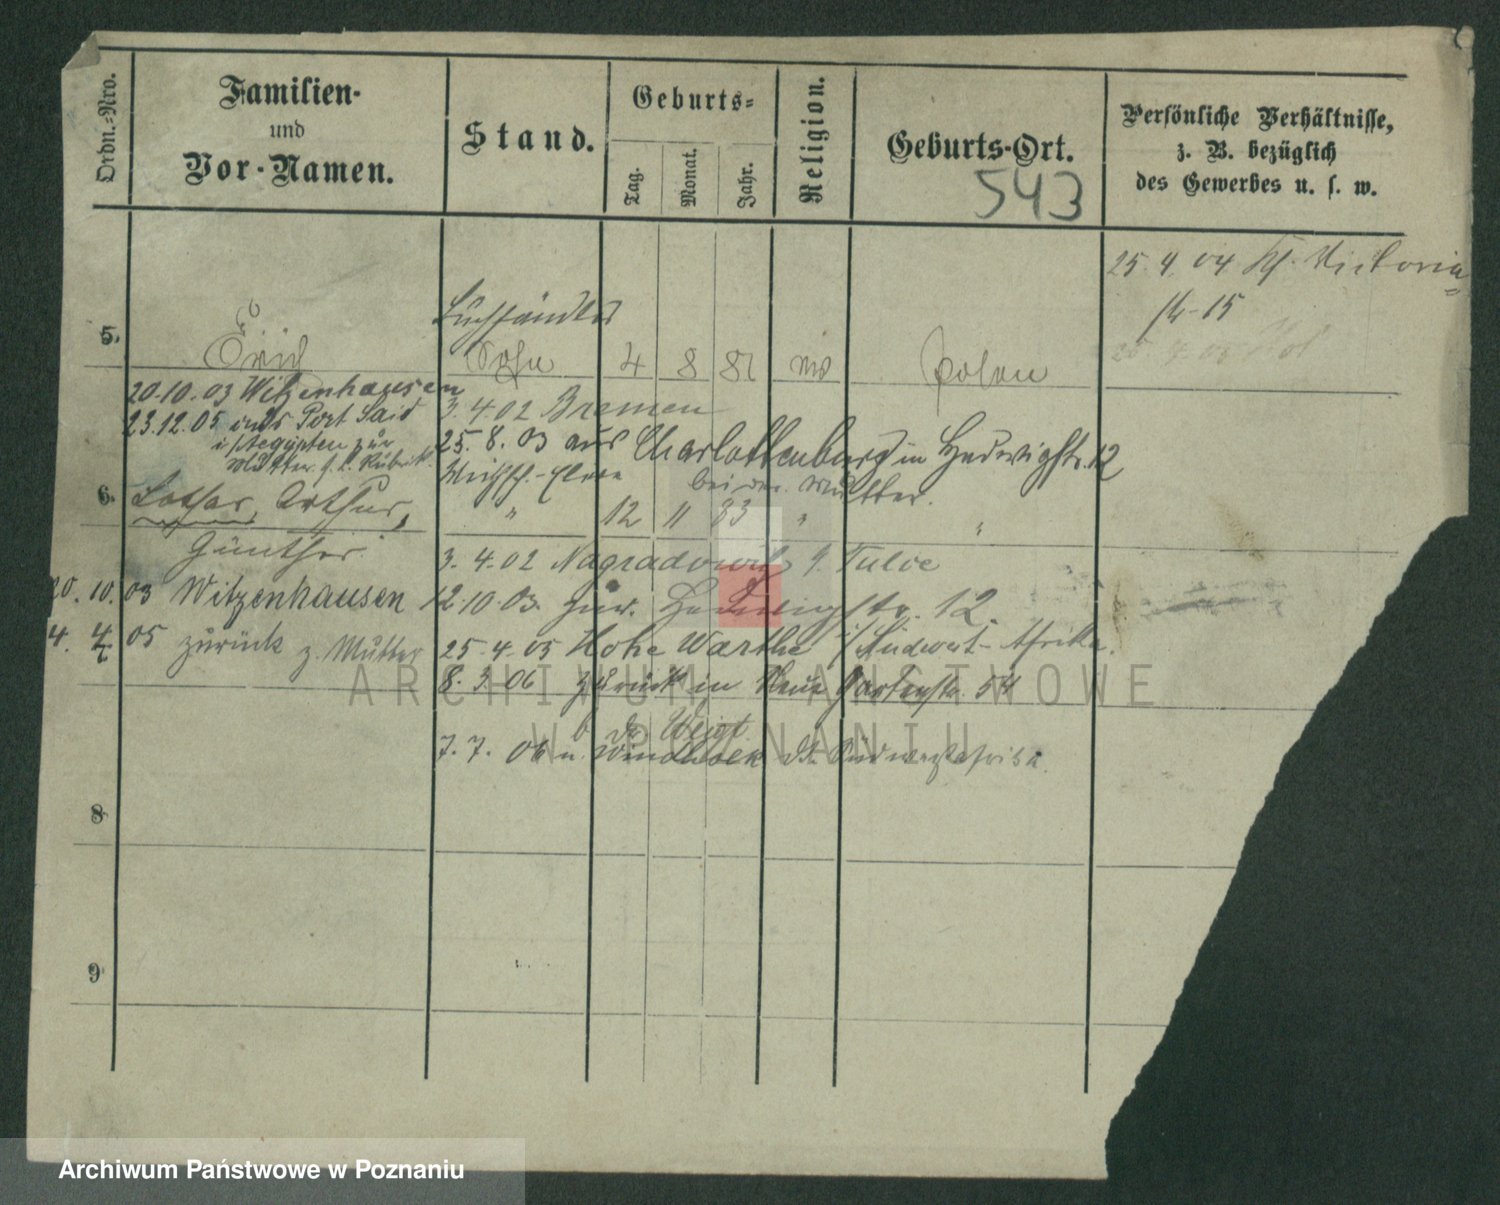 Ordn.-Nro.
Familien-
und
Vor-Namen.
Stand.
Geburts-
Tag.
Monat.
Jahr.
Religion.
Geburts-Ort.
543
Persönliche Verhältnisse,
z. B. bezüglich
des Gewerbes u. s. w.
25. 4. 04 Victoria
14-15
5.
Erich
Sohn 4 8 81 Posen
20.10.03 Witzenhausen
3.4.02 Bremen
23.12.05 Port Said
i/Aegypten zur
Mutter
25.8.03 aus Charlottenburg in Hedwigstr. 12
bei der Mutter.
6.
Lothar, Arthur,
" 12 11 83 " "
Günther.
3.4.02 Nagradowitz
20.10.03 Witzenhausen
12.10.03. zur. Hedwigstr. 12.
4. 4. 05 zurück z. Mutter
25.4.05 Hohe Warthe i/Südwest-Afrika.
8.3.06 zurück in Neue Gartenstr. 54
7.7.06 n. Windhoek Dt. Südwestafrika.
8
9
ARCHIWUM PAŃSTWOWE
W POZNANIU
Archiwum Państwowe w Poznaniu